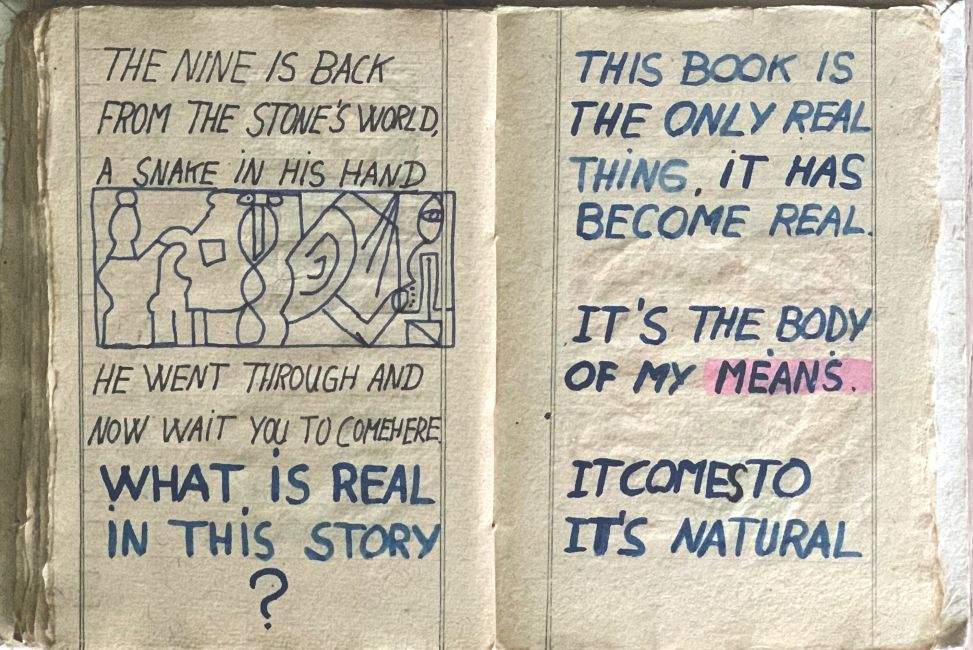 THE NINE IS BACK
FROM THE STONE'S WORLD,
A SNAKE IN HIS HAND
HE WENT THROUGH AND
NOW WAIT YOU TO COMEHERE.
WHAT IS REAL
IN THIS STORY
?
THIS BOOK IS
THE ONLY REAL
THING, IT HAS
BECOME REAL.
IT'S THE BODY
OF MY MEANS.
ITCOMESTO
IT'S NATURAL